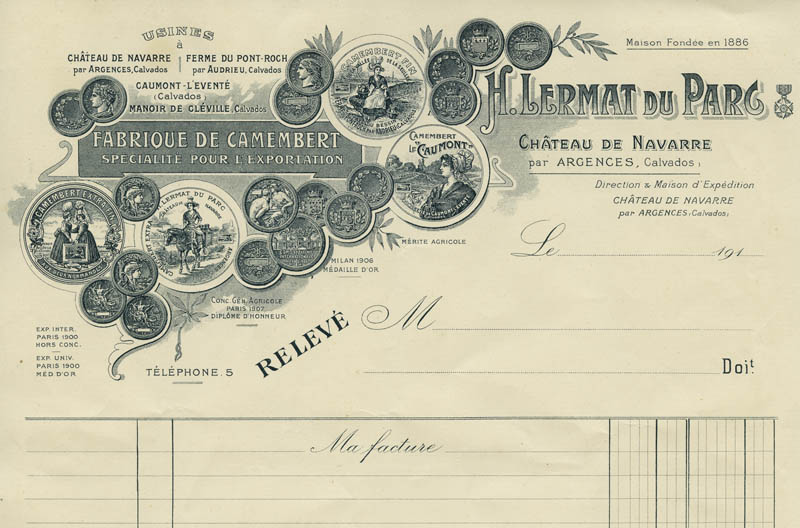 USINES
à
CHÂTEAU DE NAVARRE
par ARGENCES, Calvados
FERME DU PONT-ROCH
par AUDRIEU, Calvados
CAUMONT-L'EVENTÉ
(Calvados)
MANOIR DE CLÉVILLE, (Calvados)
FABRIQUE DE CAMEMBERT
SPÉCIALITÉ POUR L'EXPORTATION
CAMEMBERT FIN
CAMEMBERT
"LE CAUMONT"
CAMEMBERT EXTRA FIN
H. LERMAT DU PARC
CAMEMBERT EXTRA
MÉRITE AGRICOLE
MILAN 1906
MÉDAILLE D'OR
CONC. GÉN. AGRICOLE
PARIS 1907
DIPLÔME D'HONNEUR
EXP. INTER.
PARIS 1900
HORS CONC.
EXP. UNIV.
PARIS 1900
MÉD. D'OR
TÉLÉPHONE. 5
Maison Fondée en 1886
H. LERMAT DU PARC
CHÂTEAU DE NAVARRE
par ARGENCES, Calvados)
Direction & Maison d'Expédition
CHÂTEAU DE NAVARRE
par ARGENCES, (Calvados)
Le 191
RELEVÉ
M
Doit
Ma facture